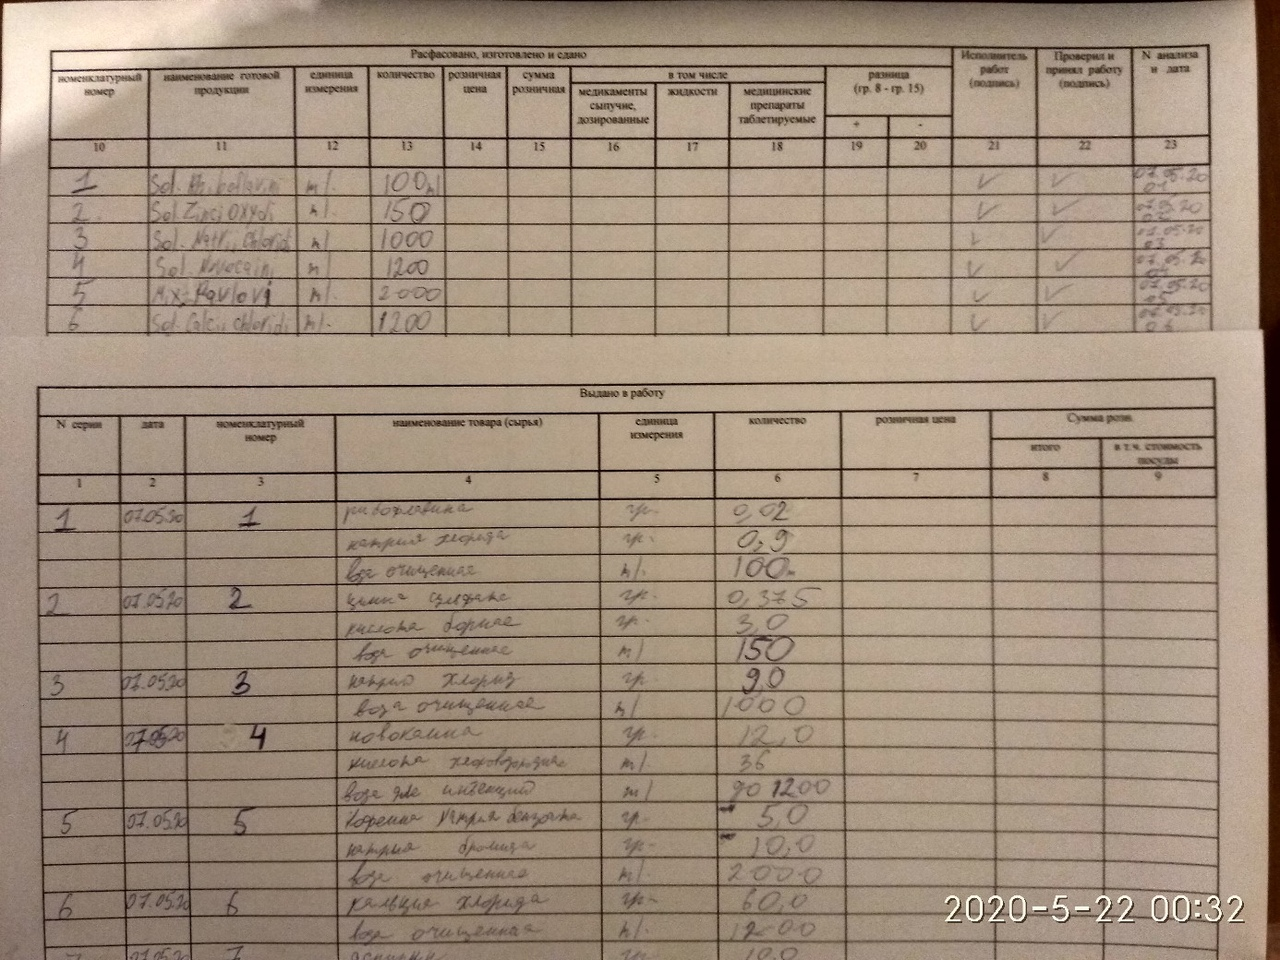 Расфасовано, изготовлено и сдано
номенклатурный номер | наименование готовой продукции | единица измерения | количество | розничная цена | сумма розничная | в том числе | разница (гр. 8 - гр. 15) | Исполнитель работ (подпись) | Проверил и принял работу (подпись) | N анализа и дата
медикаменты сыпучие, дозированные | жидкости | медицинские препараты таблетируемые | + | -
10 11 12 13 14 15 16 17 18 19 20 21 22 23
1 Sol. Riboflavini ml. 100ml 07.05.20 01
2. Sol. Zinci oxydi ml. 150 07.05.20 02
3 Sol. Natrii chloridi ml 1000 07.05.20 03
4 Sol. Novocaini ml 1200 07.05.20 04
5 Mix. Pavlovi ml. 2000 07.05.20 05
6 Sol. Calcii chloridi ml. 1200 07.05.20 06
Выдано в работу
N серии | дата | номенклатурный номер | наименование товара (сырья) | единица измерения | количество | розничная цена | Сумма розн.
итого | в т.ч. стоимость посуды
1 2 3 4 5 6 7 8 9
1 07.05.20 1 рибофлавина гр. 0,02
натрия хлорида гр. 0,9
вода очищенная ml. 100
2 07.05.20 2 цинка сульфата гр. 0,375
кислота борная гр. 3,0
вода очищенная ml 150
3 07.05.20 3 натрия хлорид гр. 9,0
вода очищенная ml 1000
4 07.05.20 4 новокаина гр. 12,0
кислота хлороводородная ml. 36
вода для инъекций ml до 1200
5 07.05.20 5 Кофеина натрия бензоата гр. 5,0
натрия бромида гр. 10,0
вода очищенная ml. 2000
6 07.05.20 6 кальция хлорида гр. 60,0
вода очищенная ml. 1200
2020-5-22 00:32